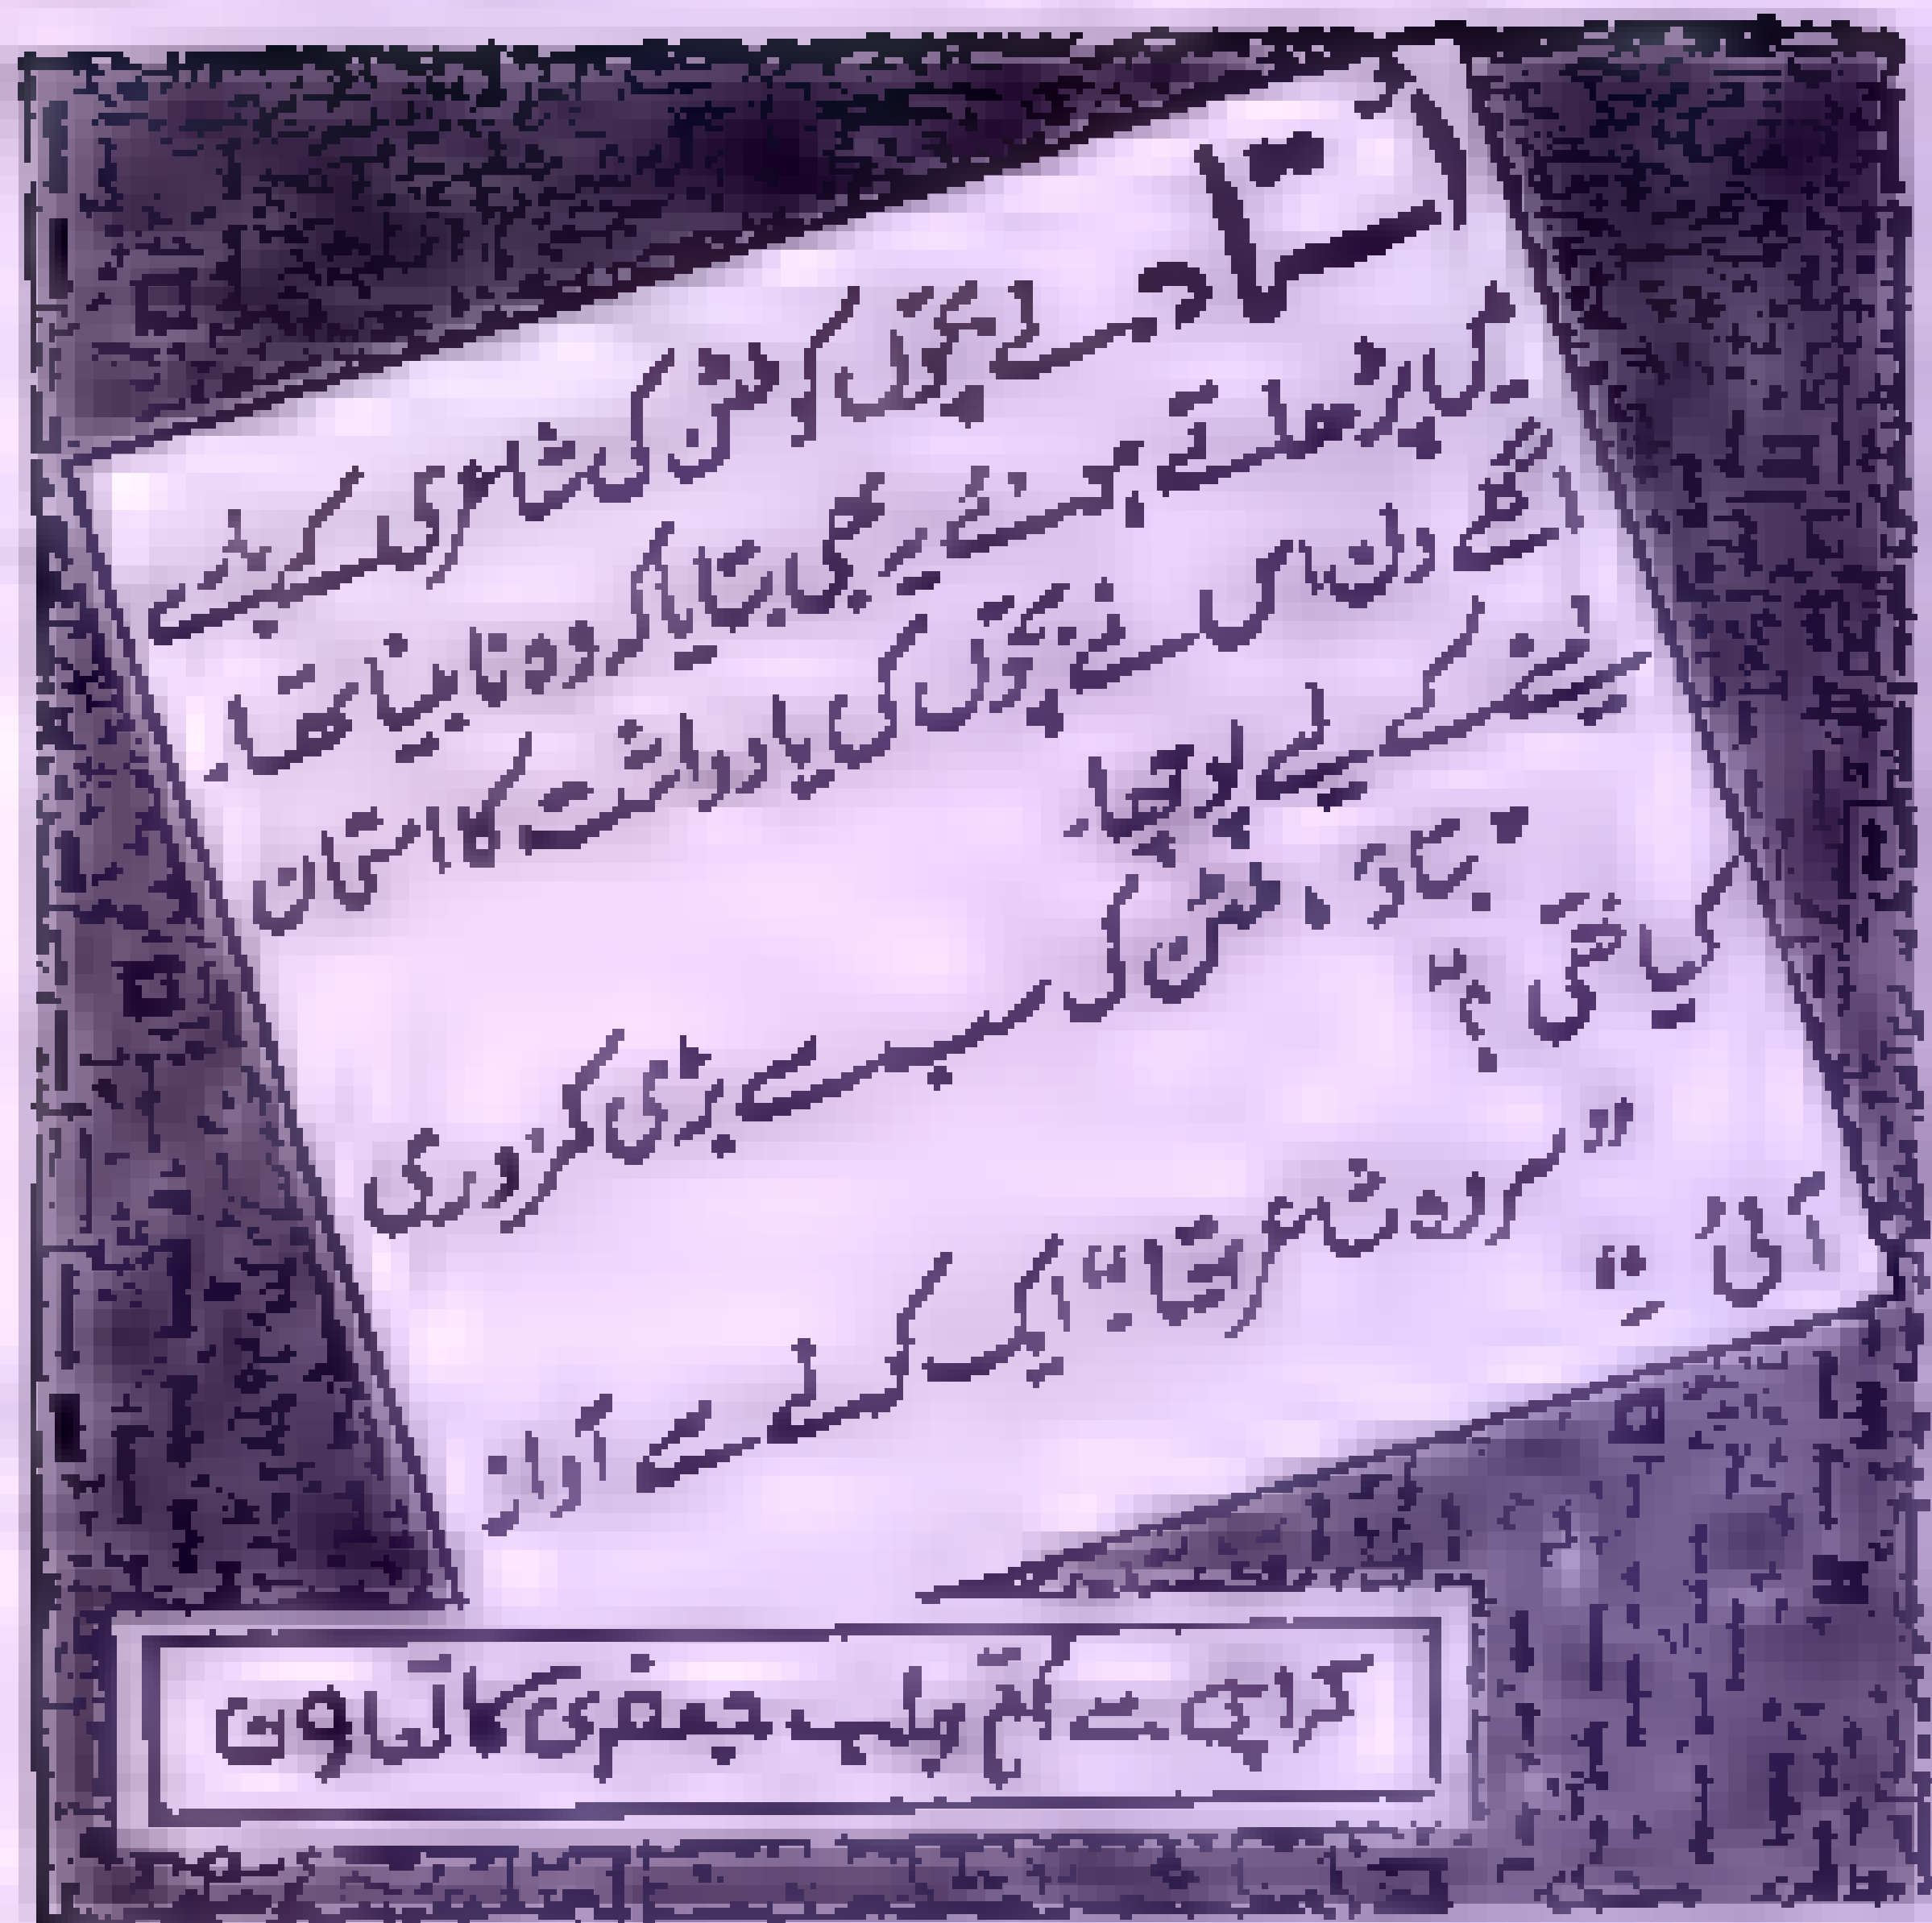 استاد نے بچوں کو ملٹن کی شاعری کے بارے
میں پڑھاتے ہوئے یہ بھی بتایا کہ وہ نابینا تھا۔
اگلے دن اس نے بچوں کی یادداشت کا امتحان
لینے کے لیے پوچھا۔
" بتاؤ ، ملٹن کی سب سے بڑی کمزوری
کیا تھی ؟"
" کہ وہ شاعر تھا " ایک کونے سے آواز
آئی ۔
کراچی سے جعفری کا تعاون